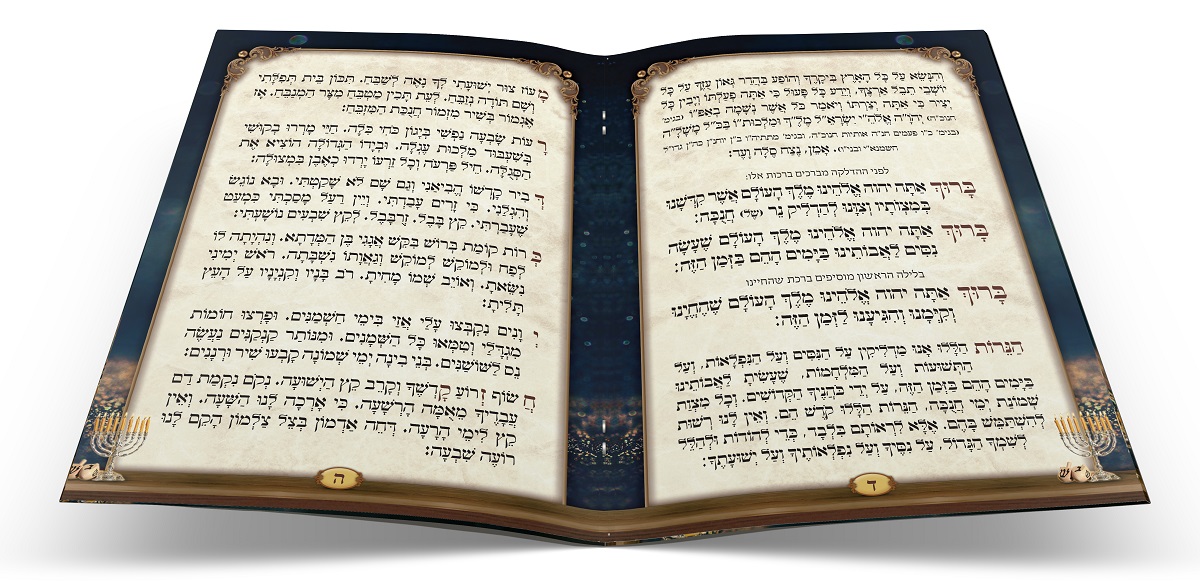 וְהִנָּשֵׂא עַל כָּל הָאָרֶץ בִּיקָרֶךָ וְהוֹפַע בַּהֲדַר גְּאוֹן עֻזֶּךָ עַל כָּל
יוֹשְׁבֵי תֵבֵל אַרְצֶךָ. וְיֵדַע כָּל פָּעוּל כִּי אַתָּה פְעַלְתּוֹ וְיָבִין כָּל
יְצִיר כִּי אַתָּה יְצַרְתּוֹ וְיֹאמַר כֹּל אֲשֶׁר נְשָׁמָה בְאַפּ״וֹ (בגימ׳
חנוכ״ה) יְהֹוָ״ה אֱלֹהֵ״י יִשְׂרָאֵ״ל מֶלֶ״ךְ וּמַלְכוּת״וֹ בַּכֹּ״ל מָשָׁלָ״ה
(בגימ׳ כ״ו פעמים חנ״ה אותיות חנוכ״ה, ובגימ׳ מתתיה״ו ב״ן יוחנ״ן כה״ן גדו״ל
חשמנא״י ובני״ו). אָמֵן, נֶצַח סֶלָה וָעֶד:
לפני ההדלקה מברכים ברכות אלו:
בָּרוּךְ אַתָּה יהוה אֱלֹהֵינוּ מֶלֶךְ הָעוֹלָם אֲשֶׁר קִדְּשָׁנוּ
בְּמִצְוֹתָיו וְצִוָּנוּ לְהַדְלִיק נֵר (שֶׁל) חֲנֻכָּה:
בָּרוּךְ אַתָּה יהוה אֱלֹהֵינוּ מֶלֶךְ הָעוֹלָם שֶׁעָשָׂה
נִסִּים לַאֲבוֹתֵינוּ בַּיָּמִים הָהֵם בַּזְּמַן הַזֶּה:
בלילה הראשון מוסיפים ברכת שהחיינו
בָּרוּךְ אַתָּה יהוה אֱלֹהֵינוּ מֶלֶךְ הָעוֹלָם שֶׁהֶחֱיָנוּ
וְקִיְּמָנוּ וְהִגִּיעָנוּ לַזְּמַן הַזֶּה:
הַנֵּרוֹת הַלָּלוּ אָנוּ מַדְלִיקִין עַל הַנִּסִּים וְעַל הַנִּפְלָאוֹת, וְעַל
הַתְּשׁוּעוֹת וְעַל הַמִּלְחָמוֹת, שֶׁעָשִׂיתָ לַאֲבוֹתֵינוּ
בַּיָּמִים הָהֵם בַּזְּמַן הַזֶּה, עַל יְדֵי כֹּהֲנֶיךָ הַקְּדוֹשִׁים. וְכָל מִצְוַת
שְׁמוֹנַת יְמֵי חֲנֻכָּה, הַנֵּרוֹת הַלָּלוּ קֹדֶשׁ הֵם. וְאֵין לָנוּ רְשׁוּת
לְהִשְׁתַּמֵּשׁ בָּהֶם, אֶלָּא לִרְאוֹתָם בִּלְבָד, כְּדֵי לְהוֹדוֹת וּלְהַלֵּל
לְשִׁמְךָ הַגָּדוֹל, עַל נִסֶּיךָ וְעַל נִפְלְאוֹתֶיךָ וְעַל יְשׁוּעָתֶךָ:
ד
מָעוֹז צוּר יְשׁוּעָתִי לְךָ נָאֶה לְשַׁבֵּחַ. תִּכּוֹן בֵּית תְּפִלָּתִי
וְשָׁם תּוֹדָה נְזַבֵּחַ. לְעֵת תָּכִין מַטְבֵּחַ מִצָּר הַמְנַבֵּחַ. אָז
אֶגְמוֹר בְּשִׁיר מִזְמוֹר חֲנֻכַּת הַמִּזְבֵּחַ:
רָעוֹת שָׂבְעָה נַפְשִׁי בְּיָגוֹן כֹּחִי כִּלָּה. חַיַּי מָרְרוּ בְּקוּשִׁי
בְּשִׁעְבּוּד מַלְכוּת עֶגְלָה. וּבְיָדוֹ הַגְּדוֹלָה הוֹצִיא אֶת
הַסְּגֻלָּה. חֵיל פַּרְעֹה וְכָל זַרְעוֹ יָרְדוּ כְאֶבֶן בִּמְצוּלָה:
דְּבִיר קָדְשׁוֹ הֱבִיאַנִי וְגַם שָׁם לֹא שָׁקַטְתִּי. וּבָא נוֹגֵשׂ
וְהִגְלַנִי. כִּי זָרִים עָבַדְתִּי. וְיֵין רַעַל מָסַכְתִּי כִּמְעַט
שֶׁעָבַרְתִּי. קֵץ בָּבֶל. זְרֻבָּבֶל. לְקֵץ שִׁבְעִים נוֹשַׁעְתִּי:
כְּרוֹת קוֹמַת בְּרוֹשׁ בִּקֵּשׁ אֲגָגִי בֶּן הַמְּדָתָא. וְנִהְיָתָה לוֹ
לְפַח וּלְמוֹקֵשׁ לְמוֹקֵשׁ וְגַאֲוָתוֹ נִשְׁבָּתָה. רֹאשׁ יְמִינִי
נִשֵּׂאתָ. וְאוֹיֵב שְׁמוֹ מָחִיתָ. רֹב בָּנָיו וְקִנְיָנָיו עַל הָעֵץ
תָּלִיתָ:
יְוָנִים נִקְבְּצוּ עָלַי אֲזַי בִּימֵי חַשְׁמַנִּים. וּפָרְצוּ חוֹמוֹת
מִגְדָּלַי וְטִמְּאוּ כָּל הַשְּׁמָנִים. וּמִנּוֹתַר קַנְקַנִּים נַעֲשָׂה
נֵס לַשּׁוֹשַׁנִּים. בְּנֵי בִינָה יְמֵי שְׁמוֹנָה קָבְעוּ שִׁיר וּרְנָנִים:
חֲשׂוֹף זְרוֹעַ קָדְשֶׁךָ וְקָרֵב קֵץ הַיְשׁוּעָה. נְקֹם נִקְמַת דַּם
עֲבָדֶיךָ מֵאֻמָּה הָרְשָׁעָה. כִּי אָרְכָה לָנוּ הַשָּׁעָה. וְאֵין
קֵץ לִימֵי הָרָעָה. דְּחֵה אַדְמוֹן בְּצֵל צַלְמוֹן הָקֵם לָנוּ
רוֹעֶה שִׁבְעָה:
ה